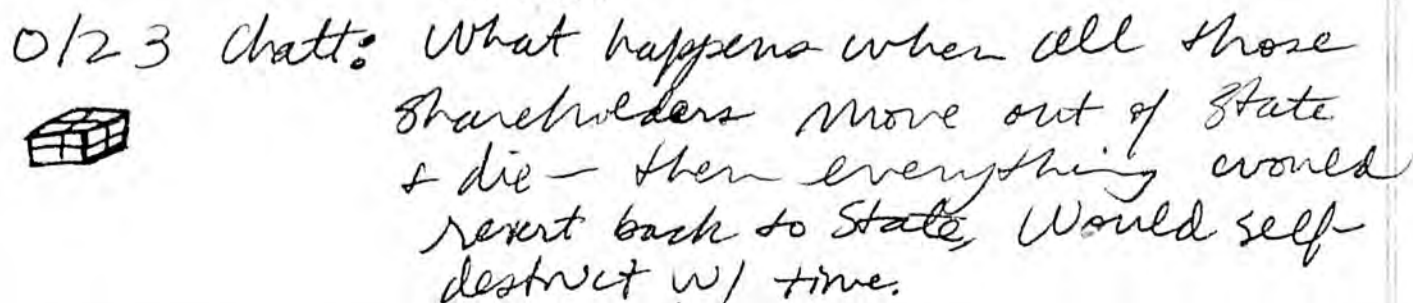 0123 Chatt: What happens when all those
shareholders move out of State
& die — then everything would
revert back to State, Would self-
destruct w/ time.